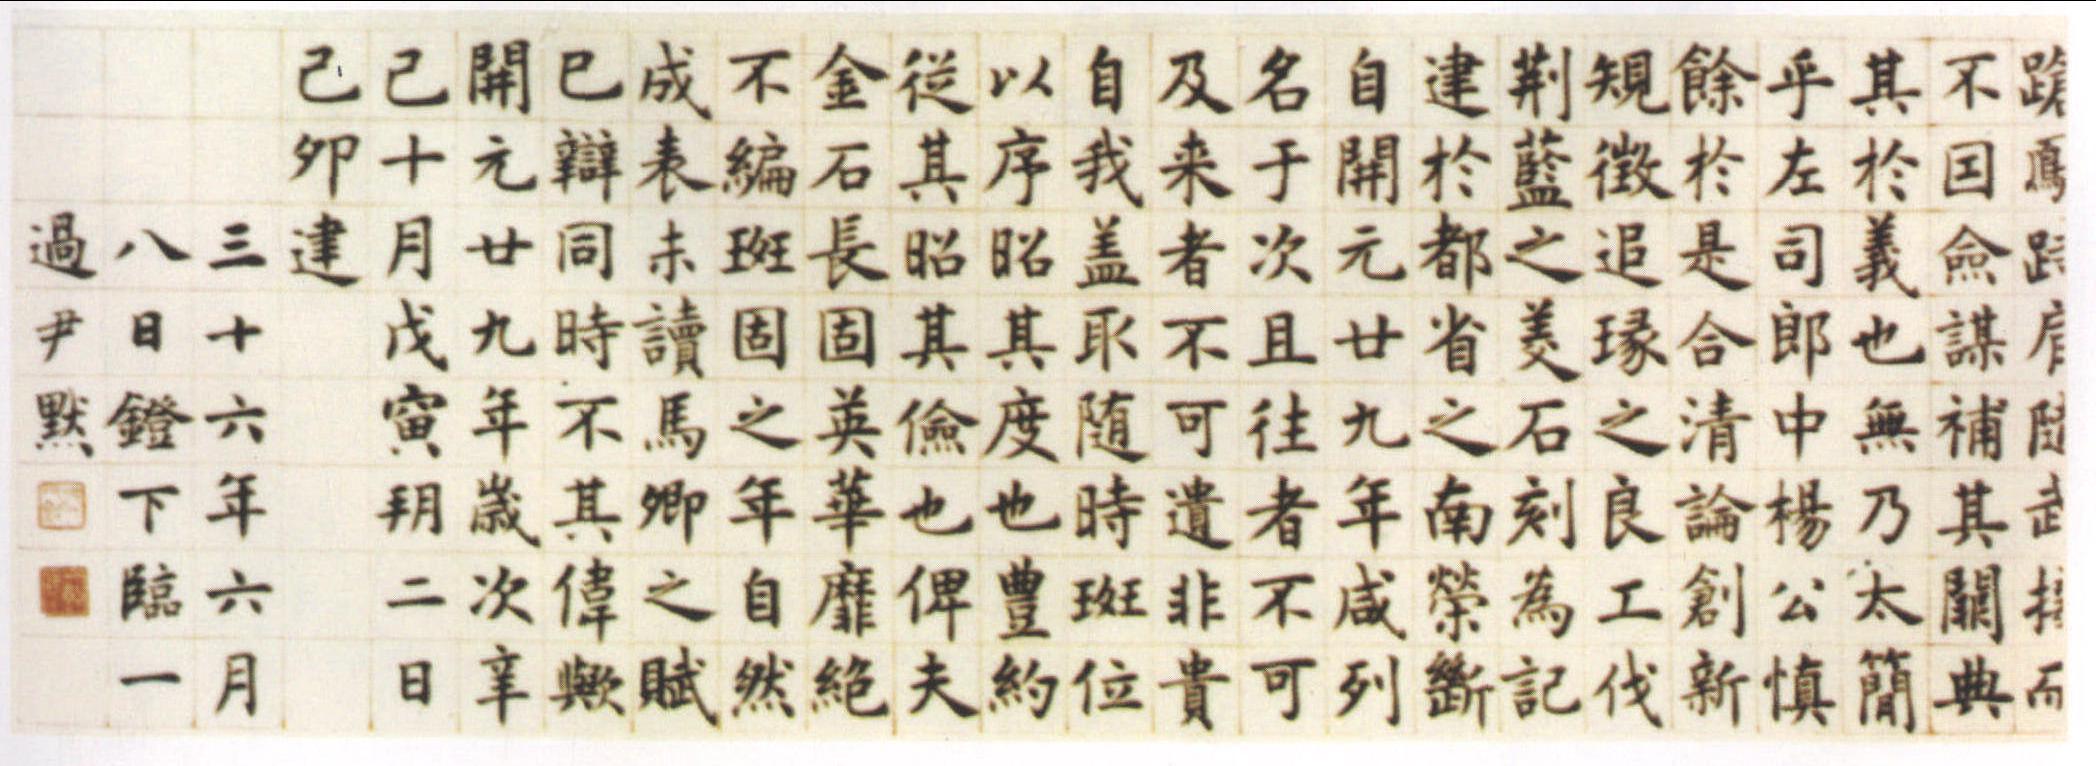 不囙僉謀補其闕典
其於義也無乃太簡
乎左司郎中楊公慎
餘於是合清論創新
規徵追琢之良工伐
荆藍之美石刻為記
建於都省之南榮斷
自開元廿九年咸列
名于次且往者不可
及来者不可遺非貴
自我盖取随時班位
以序昭其度也豊約
從其昭其儉也俾夫
金石長固英華靡絶
不編班固之年自然
成表未讀馬卿之賦
已辯同時不其偉歟
開元廿九年歳次辛
已十月戊寅朔二日
己卯建
三十六年六月
八日鐙下臨一
過尹默